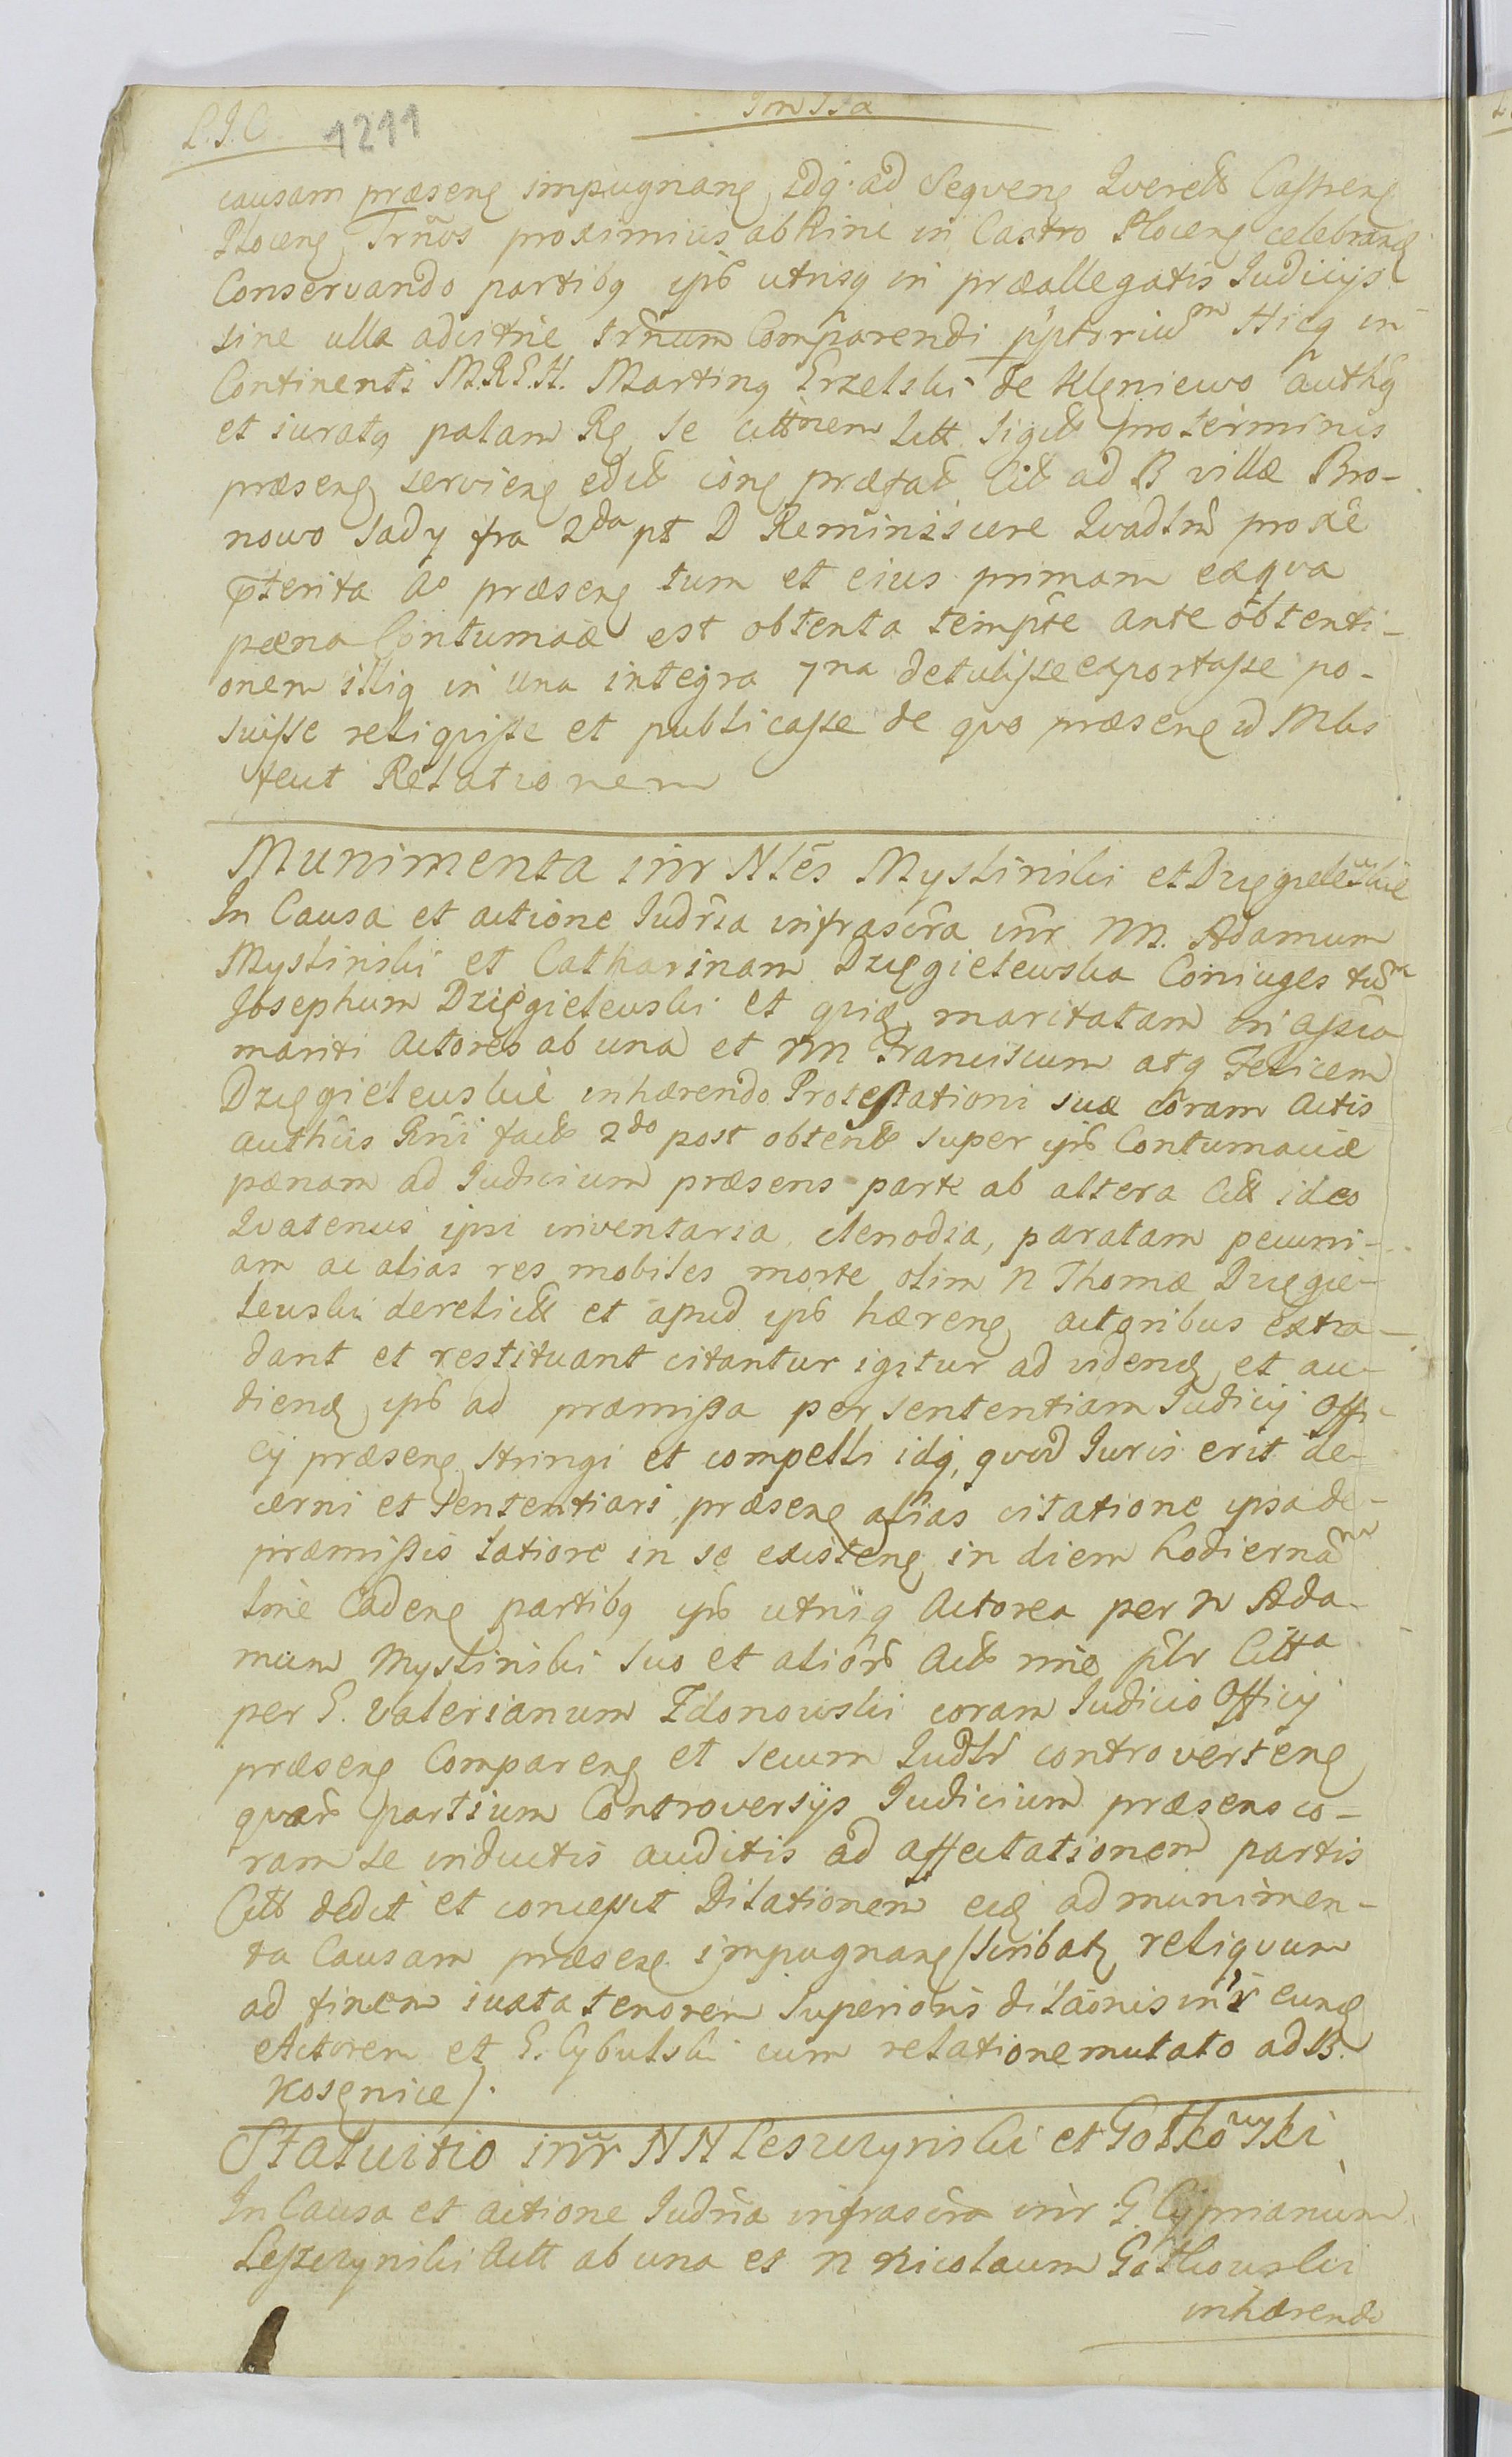 L.J.C. 1211
causam præsenę impugnanę idq. ad Seqvenę Querel Castrenę
Plocenę Trños proximius abhinc in Castro Plocenę celebranę
Conservando partibq ipś utrisq in præallegatis Judicijs
sine ulla adcitñe trñum Comparendi
Continenti M.R.E.H. Martinq Erzelski de Kleniewo authq
et iuratq palam Rę se citt͠nem litt. pro terminis
præsenę servienę prætac ad B villæ Bro-
nowo Sady fra 2da pt D Reminiscere Qvadłm proxe
præterita Ao præsenę tum et eius primam eaqva
pæna Contumaciæ est obtenta tempore ante obtenti-
onem illiq in una integra 7na detulisse exportasse po-
suisse reliqvisse et publicasse de qvo præsenę
fecit Relationem
Munimenta inr Nles Myslinski et Dzięgielewskie
In Causa et actione Iudria infrascra inr NN. Adamum
Myslinski et Catharinam Dzięgielewska Coniuges tum
Josephum Dzięgielewski et maritatam in
mariti Actores ab una et NN Franciscum atq Felicem
Dzięgielewskie inhærendo Protestationi suæ coram Actis
authcis 2do post obtent super ipś Contumaciæ
pænam ad Iudicium præsens parte ab altera Citt ideo
Qvatenus ipsi inventaria, clenodia, paratam pecuni-
am ac alias res mobiles morte olim N Thomæ Dzięgie-
lewski derelict et apud ipś hærenę actoribus extra-
dant et restituant citantur igitur ad videnę et au-
dienę ipś ad præmissa per sententiam Judicij Offi-
cij præsenę stringi et compelli idq, qvod Iuris erit de-
cerni et sententiari, præsenę alias citatione ipsa de
præmissis latiore in se existenę in diem hodiernam
Cadenę partibq ipś utrisq Actorea per N Ada-
mum Myslinski suo et aliorś Act nne pllr Citta
per G. Valerianum Zdonowski coram Iudicio Officij
præsenę Comparenę et secum Iudłr controvertenę
qvarś partium Controversijs Iudicium præsens co-
ram se inductis auditis ad affectationem partis
Citt dedit et concessit Dilationem ad munimen-
ta Causam præsenę impugnanę (scribatq reliqvum
ad finem iuxta tenorem superioris dilaõnis inr eunę
Actorem et G. Cybulski cum relatione mutato ad B.
Kosęnice).
Statuitio inr NN Leszczynski et Gotkowski
In Causa et actione Iudria infrascra inr G. Cyprianum
Leszczynski Actt ab una et N Nicolaum Gotkowski
inhærendo